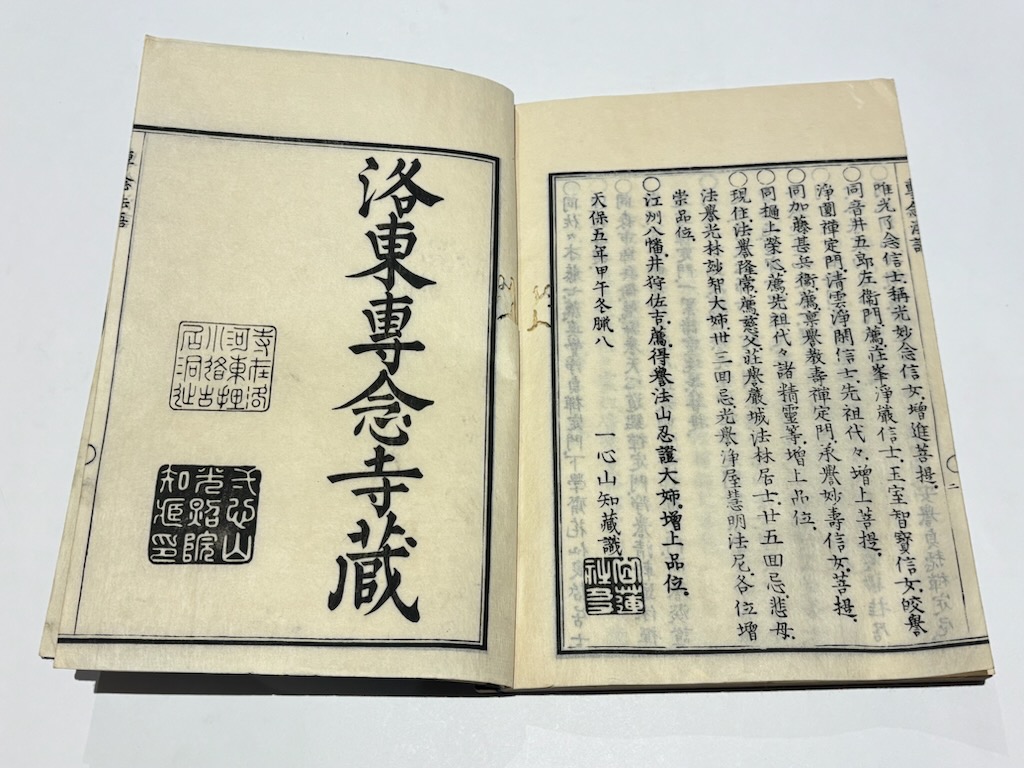 唯光了念信士、稱光妙念信女、增進菩提、
〇同吾井五郎左衞門薦、莊峯淨嚴信士、玉室智寳信女、皎譽
淨圓禪定門、清雲淨閑信士、先祖代々、增上菩提、
〇同加藤甚兵衞薦、稟譽教壽禪定門、承譽妙壽信女、菩提、
〇同樋上榮心薦、先祖代々諸精靈等、增上品位、
〇現住、法譽隆常薦、慈父、莊譽嚴城法林居士、廿五回忌、悲母、
法譽光林妙智大姉、卅三回忌、光譽淨屋慧明法尼、各位增
崇品位、
〇江刕八幡、井狩佐吉、薦、得譽法山忍䕶大姉、增上品位、
天保五年甲午冬臘八
一心山知藏識
白蓮社
二
洛東專念寺藏
寺在洛
河東堙
小路古